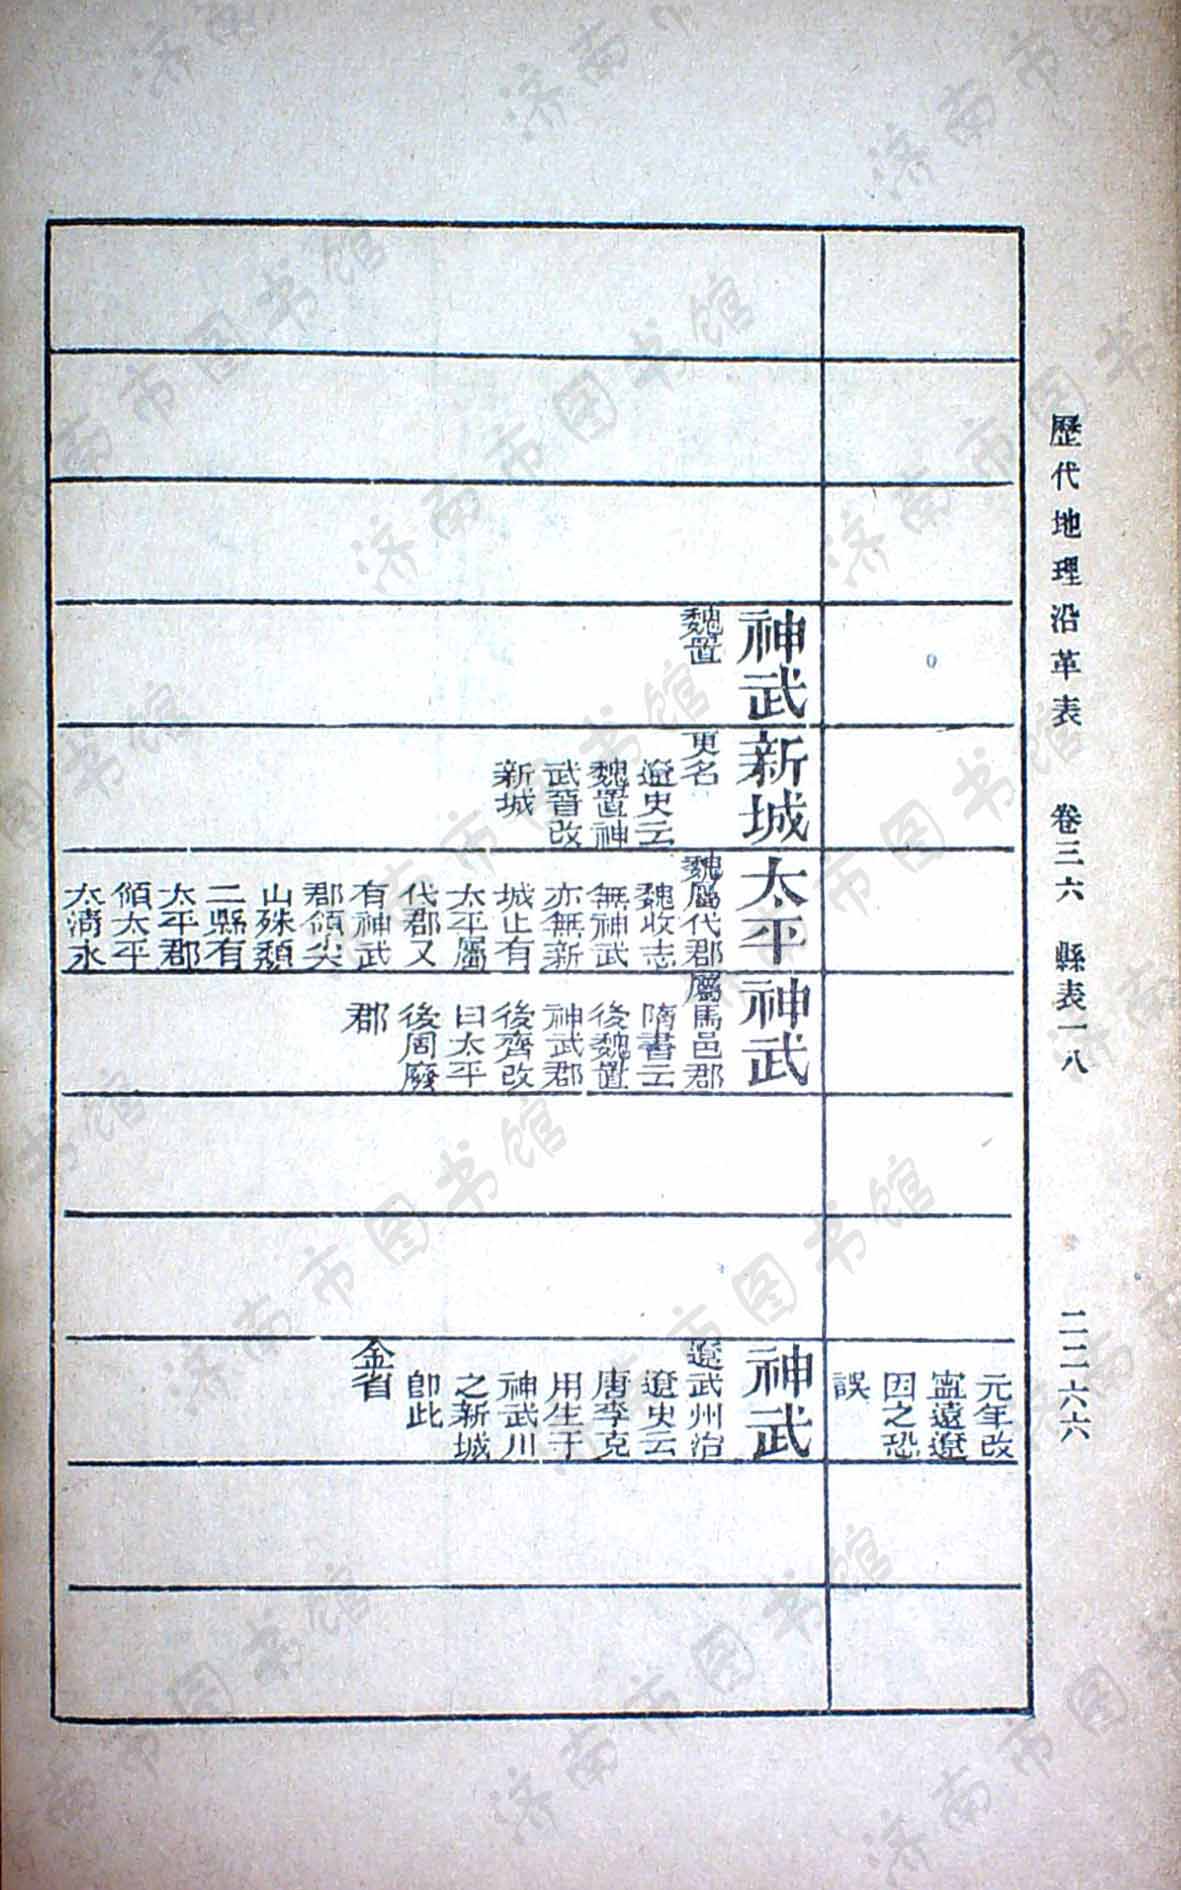 歷代地理沿革表　卷三六　縣表一八　二二六六
元年改
寧遠遼
因之恐
誤
神武
魏置
新城
更名
遼史云
魏置神
武晉改
新城
太平
魏屬代郡
魏收志
無神武
亦無新
城止有
太平屬
代郡又
有神武
郡領尖
山殊頹
二縣有
太平郡
領太平
太清永
神武
屬馬邑郡
隋書云
後魏置
神武郡
後齊改
曰太平
後周廢
郡
神武
遼武州治
遼史云
唐李克
用生于
神武川
之新城
卽此
金省
济南市图书馆